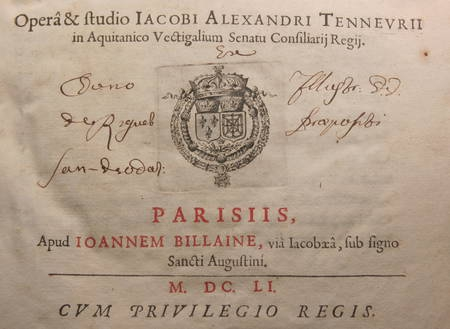 Operâ & studio IACOBI ALEXANDRI TENNEVRII
in Aquitanico Vectigalium Senatu Consiliarij Regij.
Ex
Dono
Illustr: D. D.
de Riguet
Præpositi
San-Deodat:
PARISIIS,
Apud IOANNEM BILLAINE, viâ Iacobæâ, sub signo
Sancti Augustini.
M. DC. LI.
CVM PRIVILEGIO REGIS.